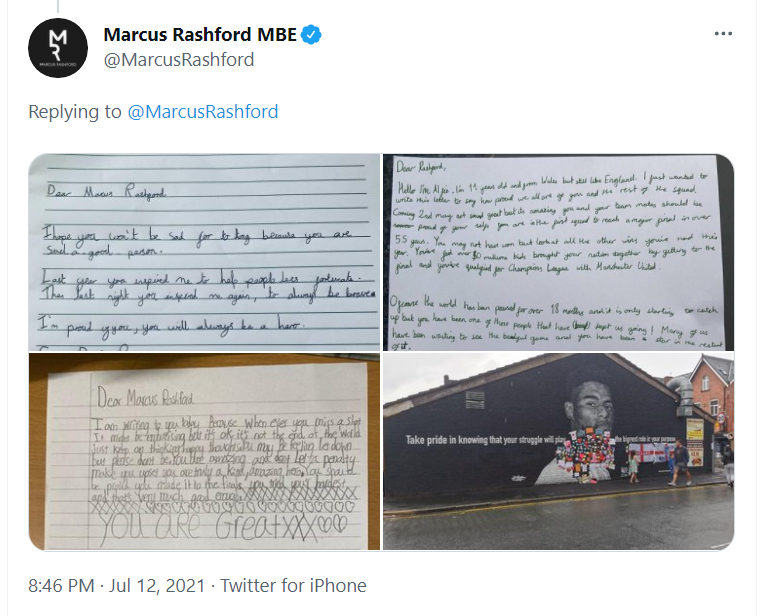 Marcus Rashford MBE
@MarcusRashford
MARCUS RASHFORD
Replying to @MarcusRashford
Dear Marcus Rashford
I hope you won't be sad for to long because you are
such a good person.
Last year you inspired me to help people less fortunate.
Then last night you inspired me again, to always be brave
I'm proud of you, you will always be a hero.
Dear Rashford,
Hello I'm Alfie. I'm 11 year old and from Wales but still like England. I just wanted to
write this letter to say how proud we all are of you and the rest of the squad.
Coming 2nd may not sound great but its amazing you and your team mates should be
proud of your selfs you are the first squad to reach a major final in over
55 years. You may not have won but look at all the other wins you've had this
year. You've fed over million kids brought your nation together by getting to the
final and you've qualified for Champions League with Manchester United.
Ofcourse the world has been paused for over 18 months and it is only starting to catch
up but you have been one of these people that have kept us going! Many of us
have been waiting to see the beautiful game and you have been a star in the restart
of it.
Dear Marcus Rashford
I am writing to you today because when ever you miss a shot
It might be embarrising but it's ok it's not the end of the world
just keep on thinking happy thoughts. You may be feeling let down
but please don't be. You are amazing just don't let 1 penalty
make you upset you are truly a kind, amazing hero. You should
be proud you made it to the finals you tried your hardest
and that's very much good enough
YOU are Great xxx
Take pride in knowing that your struggle will play the biggest role in your purpose
8:46 PM · Jul 12, 2021 · Twitter for iPhone